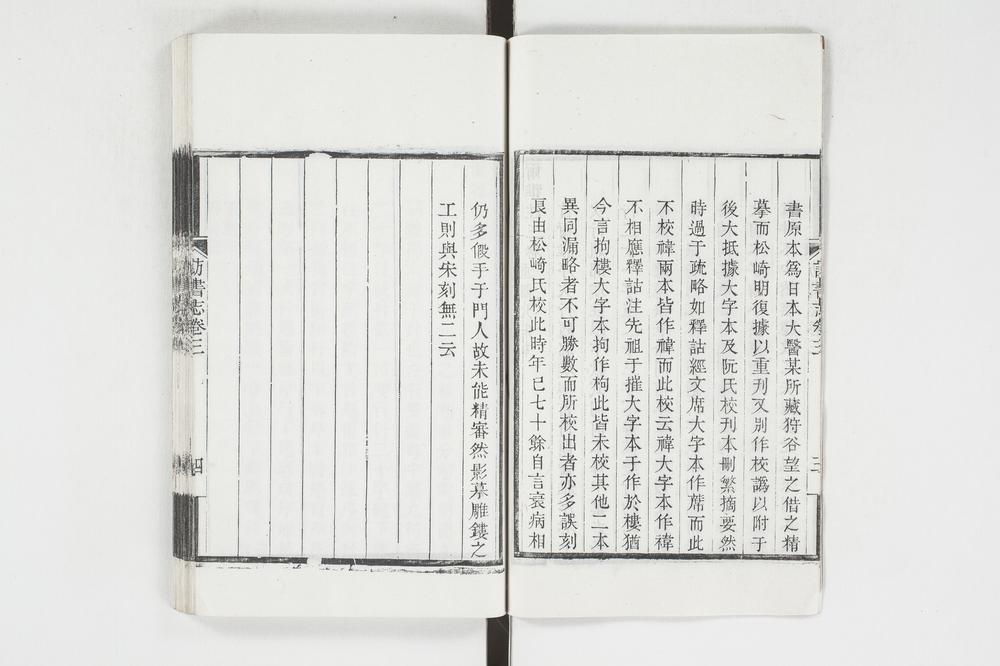 書原本爲日本大醫某所藏狩谷望之借之精
摹而松崎明復據以重刋又別作校譌以附于
後大抵據大字本及阮氏校刊本刪繁摘要然
時過于疏略如釋詁經文席大字本作蓆而此
不校禕兩本皆作禕而此校云禕大字本作褘
不相應釋詁注先祖于摧大字本于作於樓猶
今言拘樓大字本拘作枸此皆未校其他二本
異同漏略者不可勝數而所校出者亦多誤刻
良由松崎氏校此時年已七十餘自言衰病相
訪書志卷三
三
仍多假手于門人故未能精審然影摹雕鏤之
工則與宋刻無二云
訪書志卷三
四